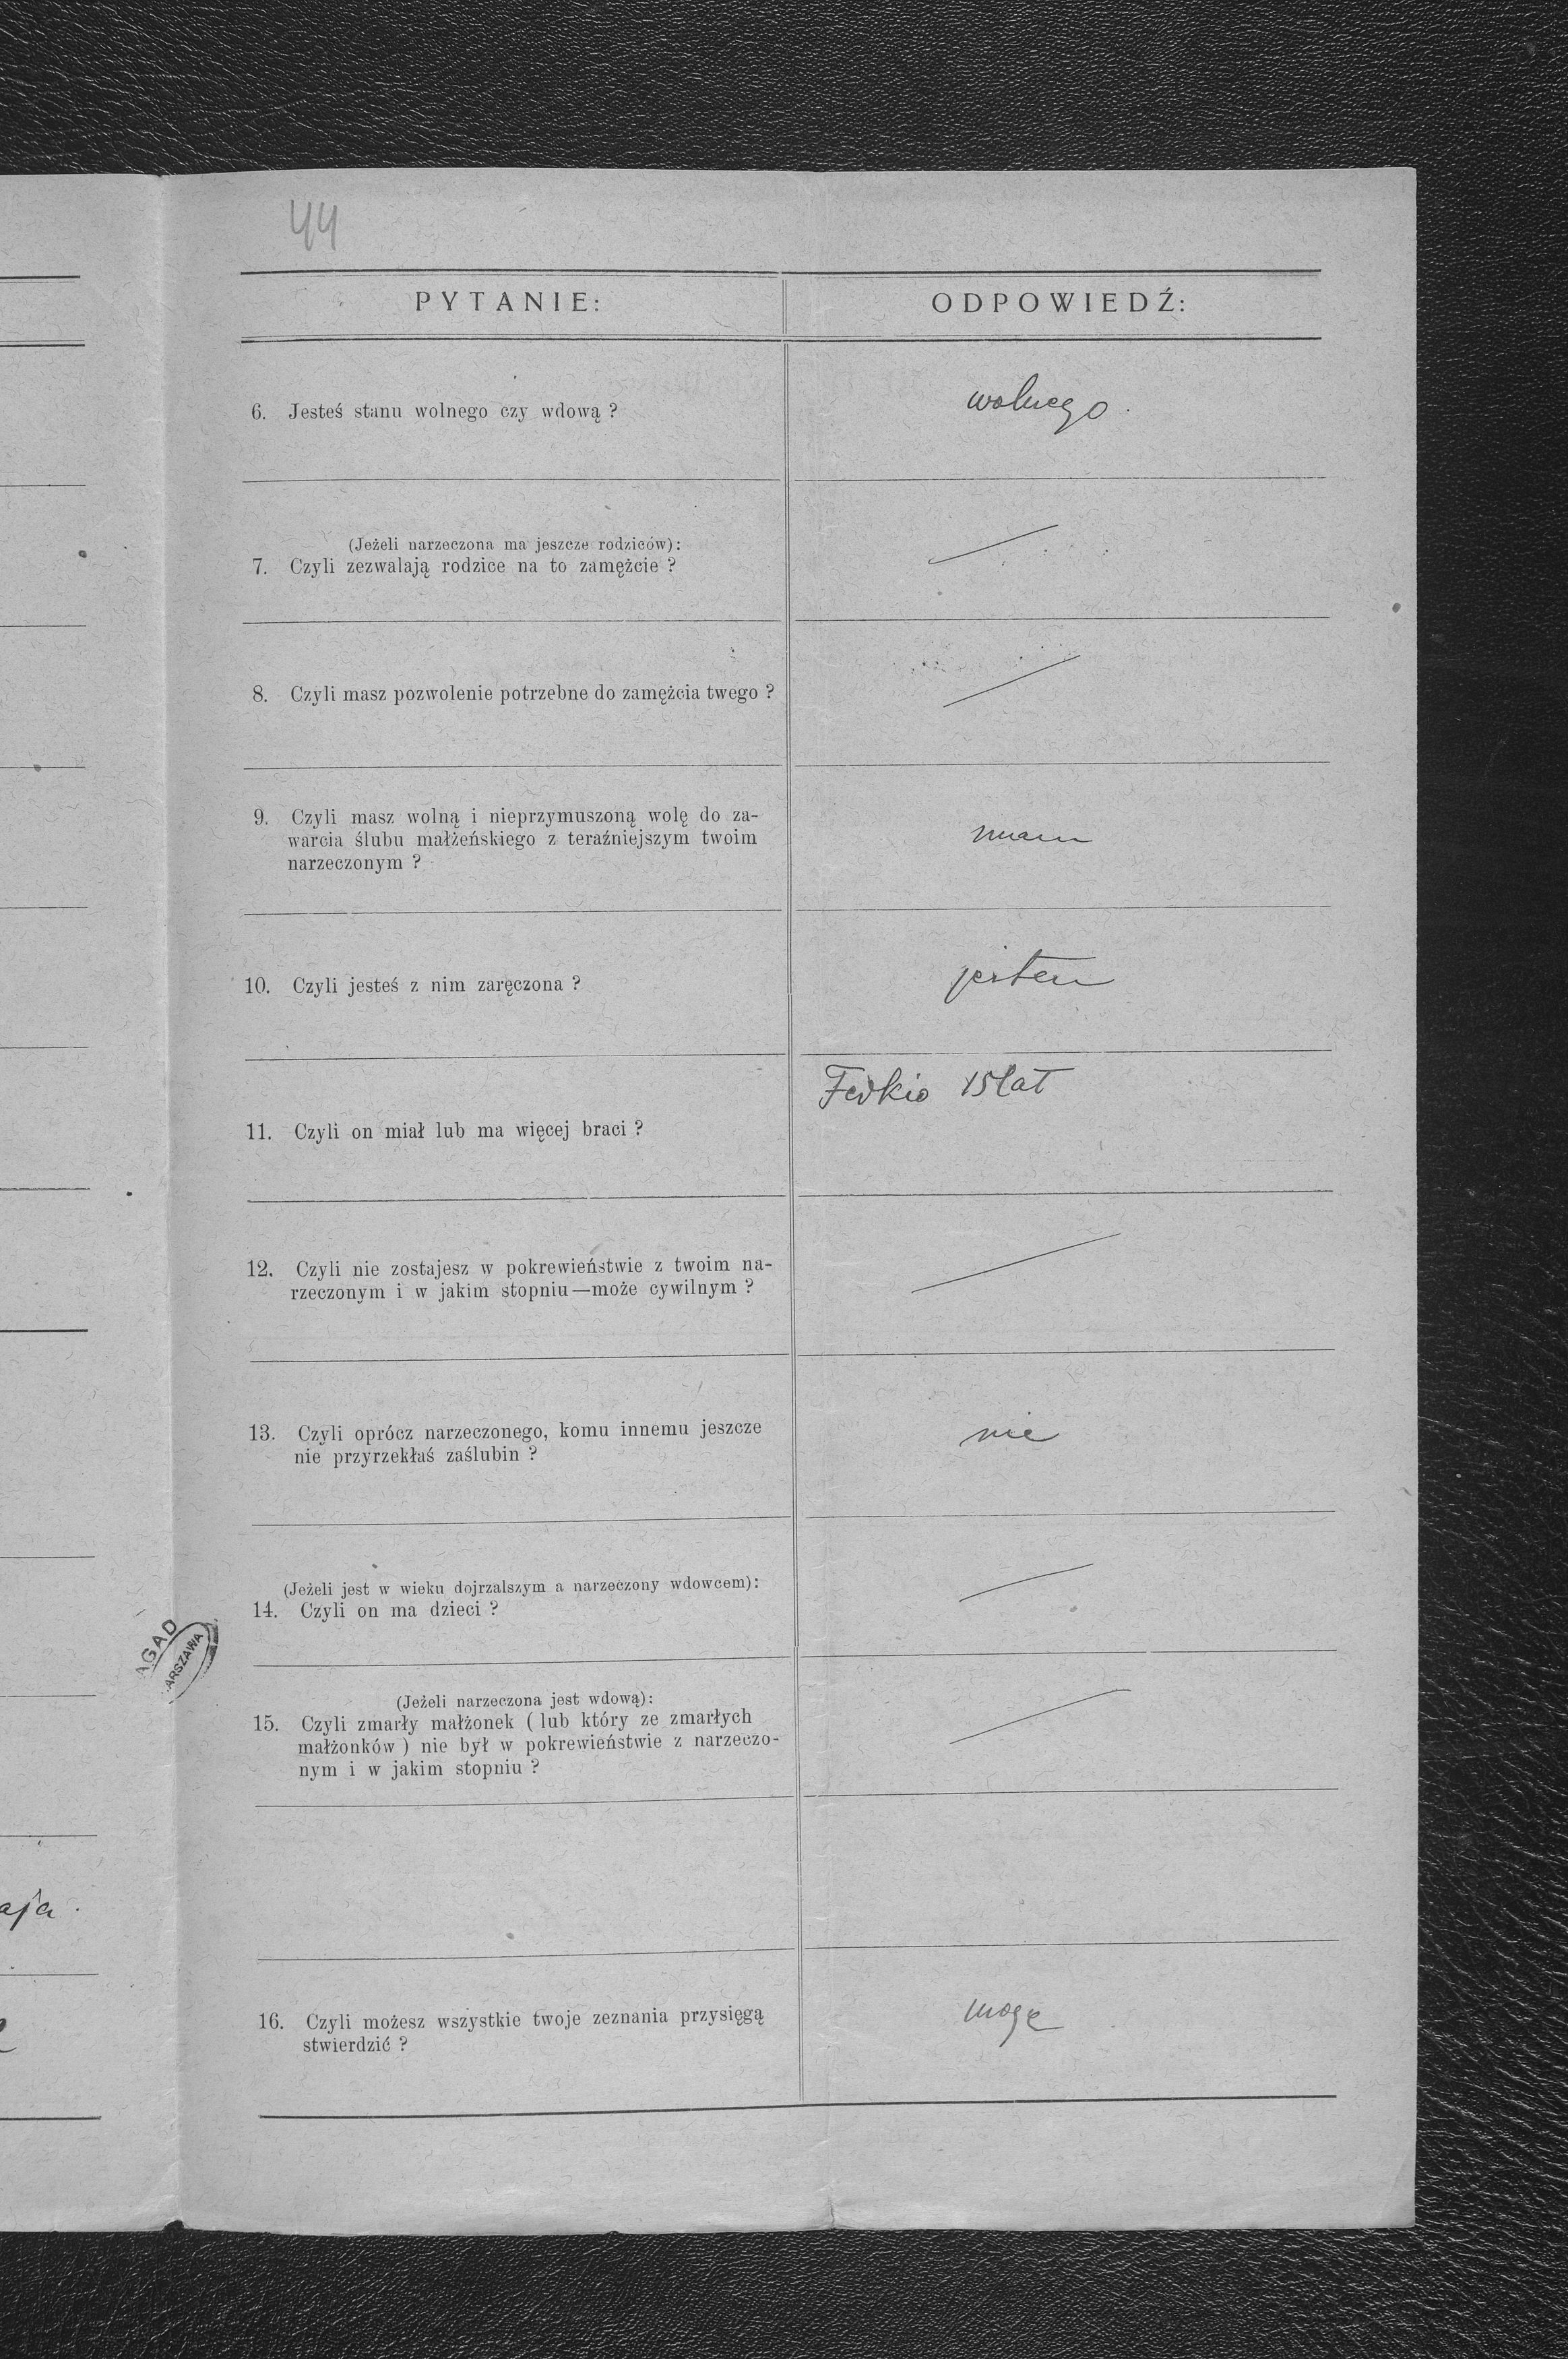 44
PYTANIE:
ODPOWIEDŹ:
6. Jesteś stanu wolnego czy wdową ?
wolnego.
(Jeżeli narzeczona ma jeszcze rodziców):
7. Czyli zezwalają rodzice na to zamężcie ?
8. Czyli masz pozwolenie potrzebne do zamężcia twego ?
9. Czyli masz wolną i nieprzymuszoną wolę do za-
warcia ślubu małżeńskiego z teraźniejszym twoim
narzeczonym ?
mam
10. Czyli jesteś z nim zaręczona ?
jestem
11. Czyli on miał lub ma więcej braci ?
Fedkio 15 lat
12. Czyli nie zostajesz w pokrewieństwie z twoim na-
rzeczonym i w jakim stopniu—może cywilnym ?
13. Czyli oprócz narzeczonego, komu innemu jeszcze
nie przyrzekłaś zaślubin ?
nie
(Jeżeli jest w wieku dojrzalszym a narzeczony wdowcem):
14. Czyli on ma dzieci ?
AGAD
WARSZAWA
(Jeżeli narzeczona jest wdową):
15. Czyli zmarły małżonek ( lub który ze zmarłych
małżonków ) nie był w pokrewieństwie z narzeczo-
nym i w jakim stopniu ?
16. Czyli możesz wszystkie twoje zeznania przysięgą
stwierdzić ?
mogę